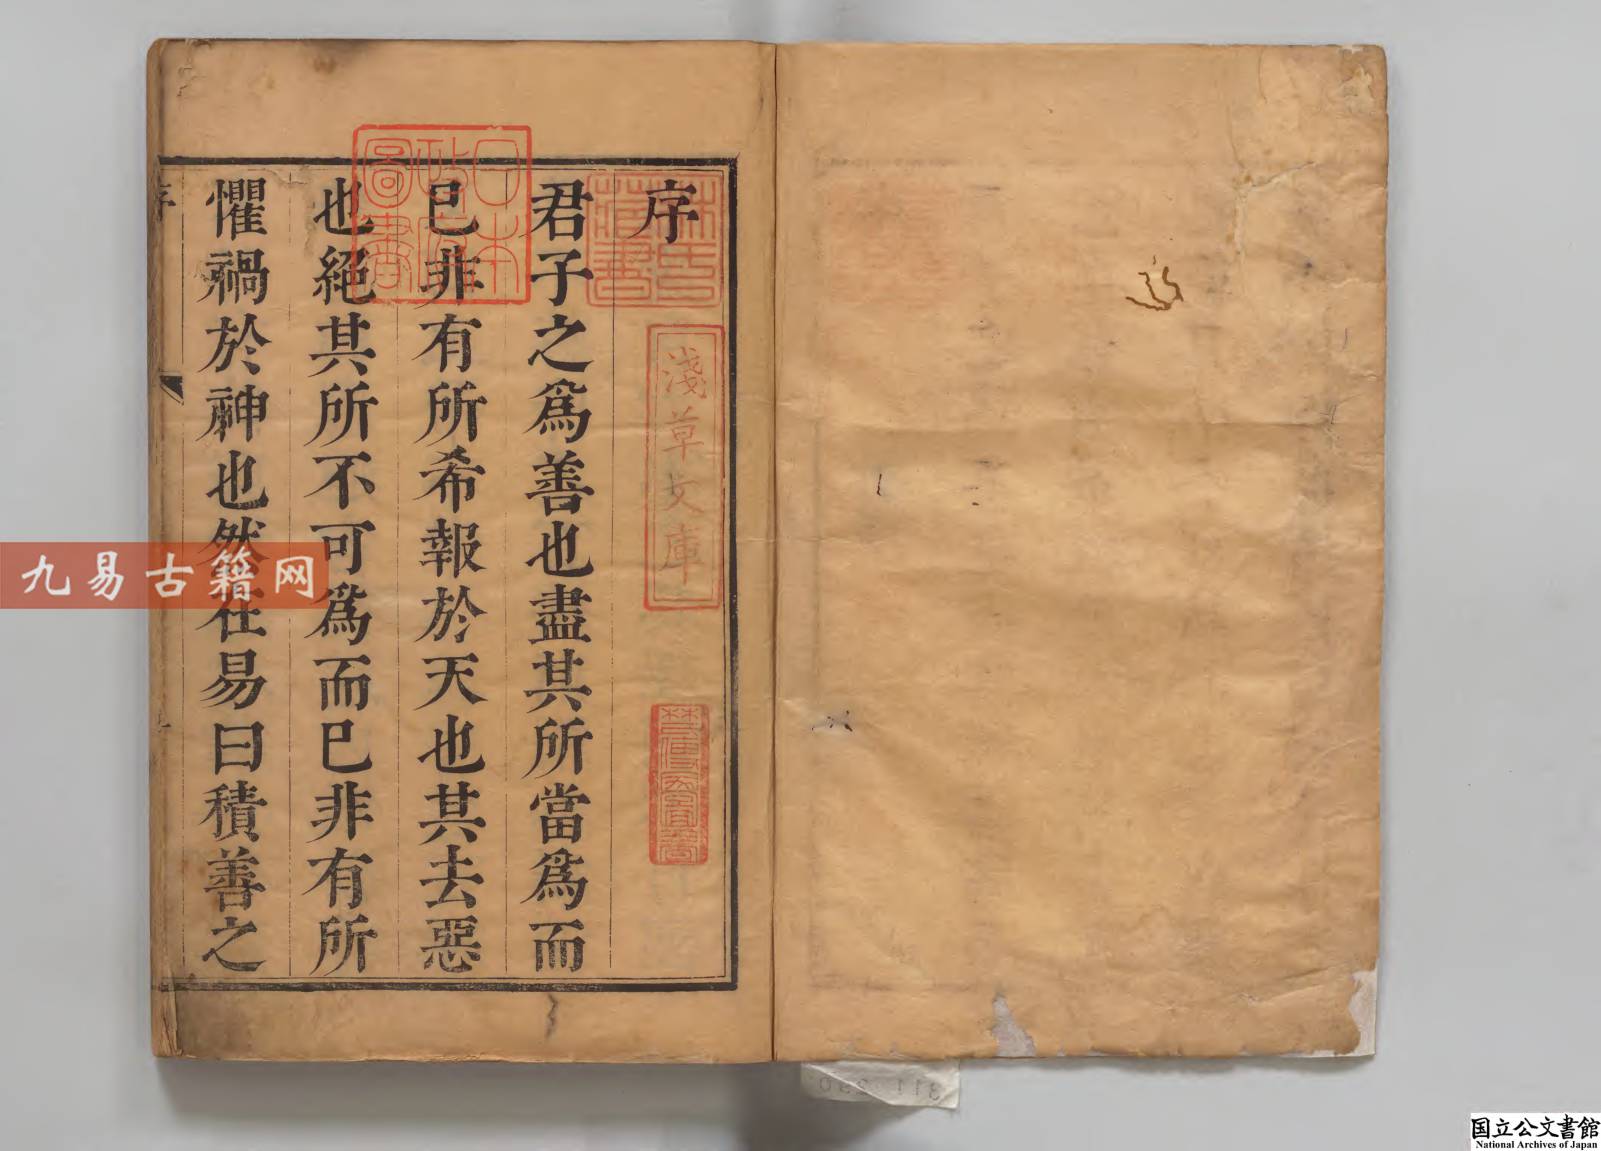 序
君子之爲善也盡其所當爲而
已非有所希報於天也其去惡
也絕其所不可爲而已非有所
懼禍於神也然在易曰積善之
序
林氏藏書
日本政府圖書
淺草文庫
九易古籍网
国立公文書館
National Archives of Japan